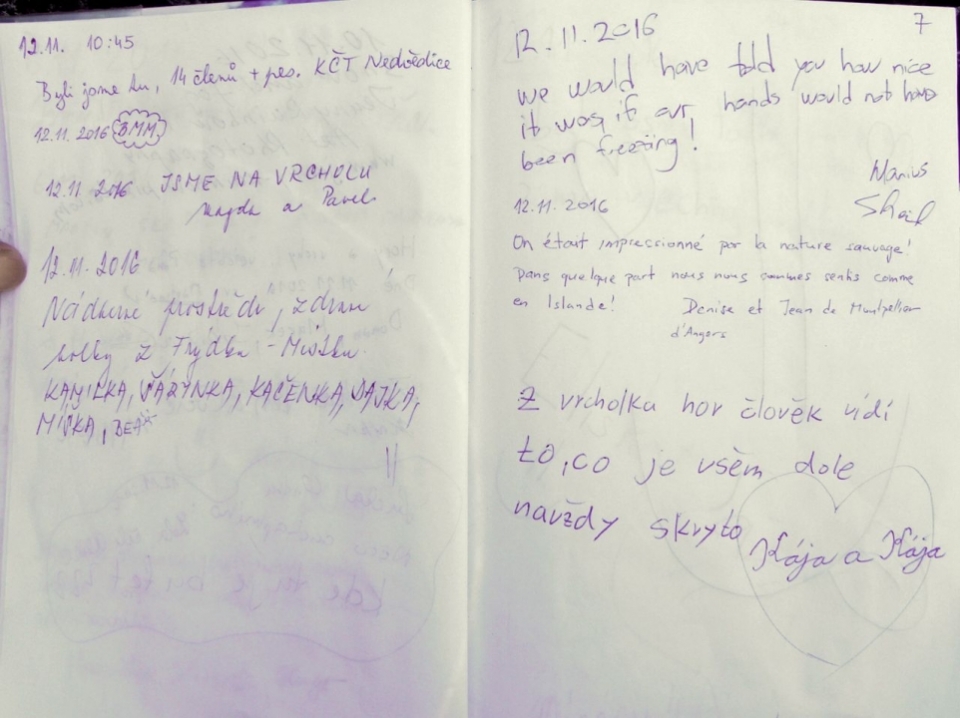 12.11. 10:45
Byli jsme tu, 14 členů + pes. KČT Nedvědice
12.11.2016 BMM
12.11 2016 JSME NA VRCHOLU
Majda a Pavel
12.11.2016
Nádherné prostředí, zdraví
holky z Frýdku-Místku.
KAMILKA, BÁRYNKA, KAČENKA, DAJKA,
MIŠKA, BEA
7
12.11.2016
we would have told you how nice
it was, if our hands would not have
been freezing!
Marius
12.11.2016
On était impressionné par la nature sauvage!
Dans quelque part nous nous sommes sentis comme
en Islande! Denise et Jean de Montpellier
d'Angers
Z vrcholku hor člověk vidí
to, co je všem dole
navždy skryto
Kája a Kája